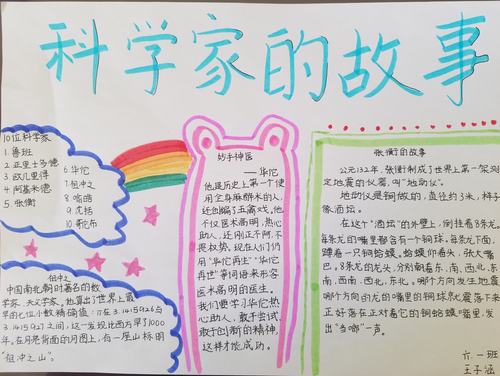 科学家的故事
10位科学家
1.鲁班
2.亚里士多德
3.欧几里得
4.阿基米德
5.张衡
6.华佗
7.祖冲之
8.哈雷
9.沈括
10.哥伦布
祖冲之
中国南北朝时著名的数
学家、天文学家,他算出了世界上最
早的七位小数精确值:π在3.1415926与
3.1415927之间,这一发现比西方早了1000
年。在月亮背面的月图上,有一座山标明
"祖冲之山"。
妙手神医
——华佗
他是历史上第一个使
用全身麻醉术的人,
还创编了五禽戏,他不
仅医术高明,热心
助人,还刚正不阿、不
畏权势。现在人们仍
用"华佗再生""华佗
再世"等词语来形容
医术高明的医生。
我们要学习华佗热
心助人,敢于尝试,
敢于创新的精神,
这样才能成功。
张衡的故事
公元132年,张衡制成了世界上第一架测
定地震的仪器,叫"地动仪"。
地动仪是铜做的,直径约3米,样子
像酒坛。
在这个"酒坛"的外壁上,倒挂着8条龙。
每条龙的嘴里都含有一个铜球。每条龙下面,
蹲着一只铜蛤蟆。蛤蟆仰着头,张大嘴
巴。8条龙的龙头,分别朝着东、南、西、北、东
南、西南、西北、东北。哪个方向发生地震
哪个方向的龙的嘴里的铜球就被震落下来
正好落在正对着它的铜蛤蟆嘴里,发
出"当啷"一声。
六.一班
王子涵